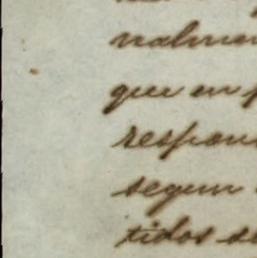 nalmen
que en p
respon
segun
tidos se